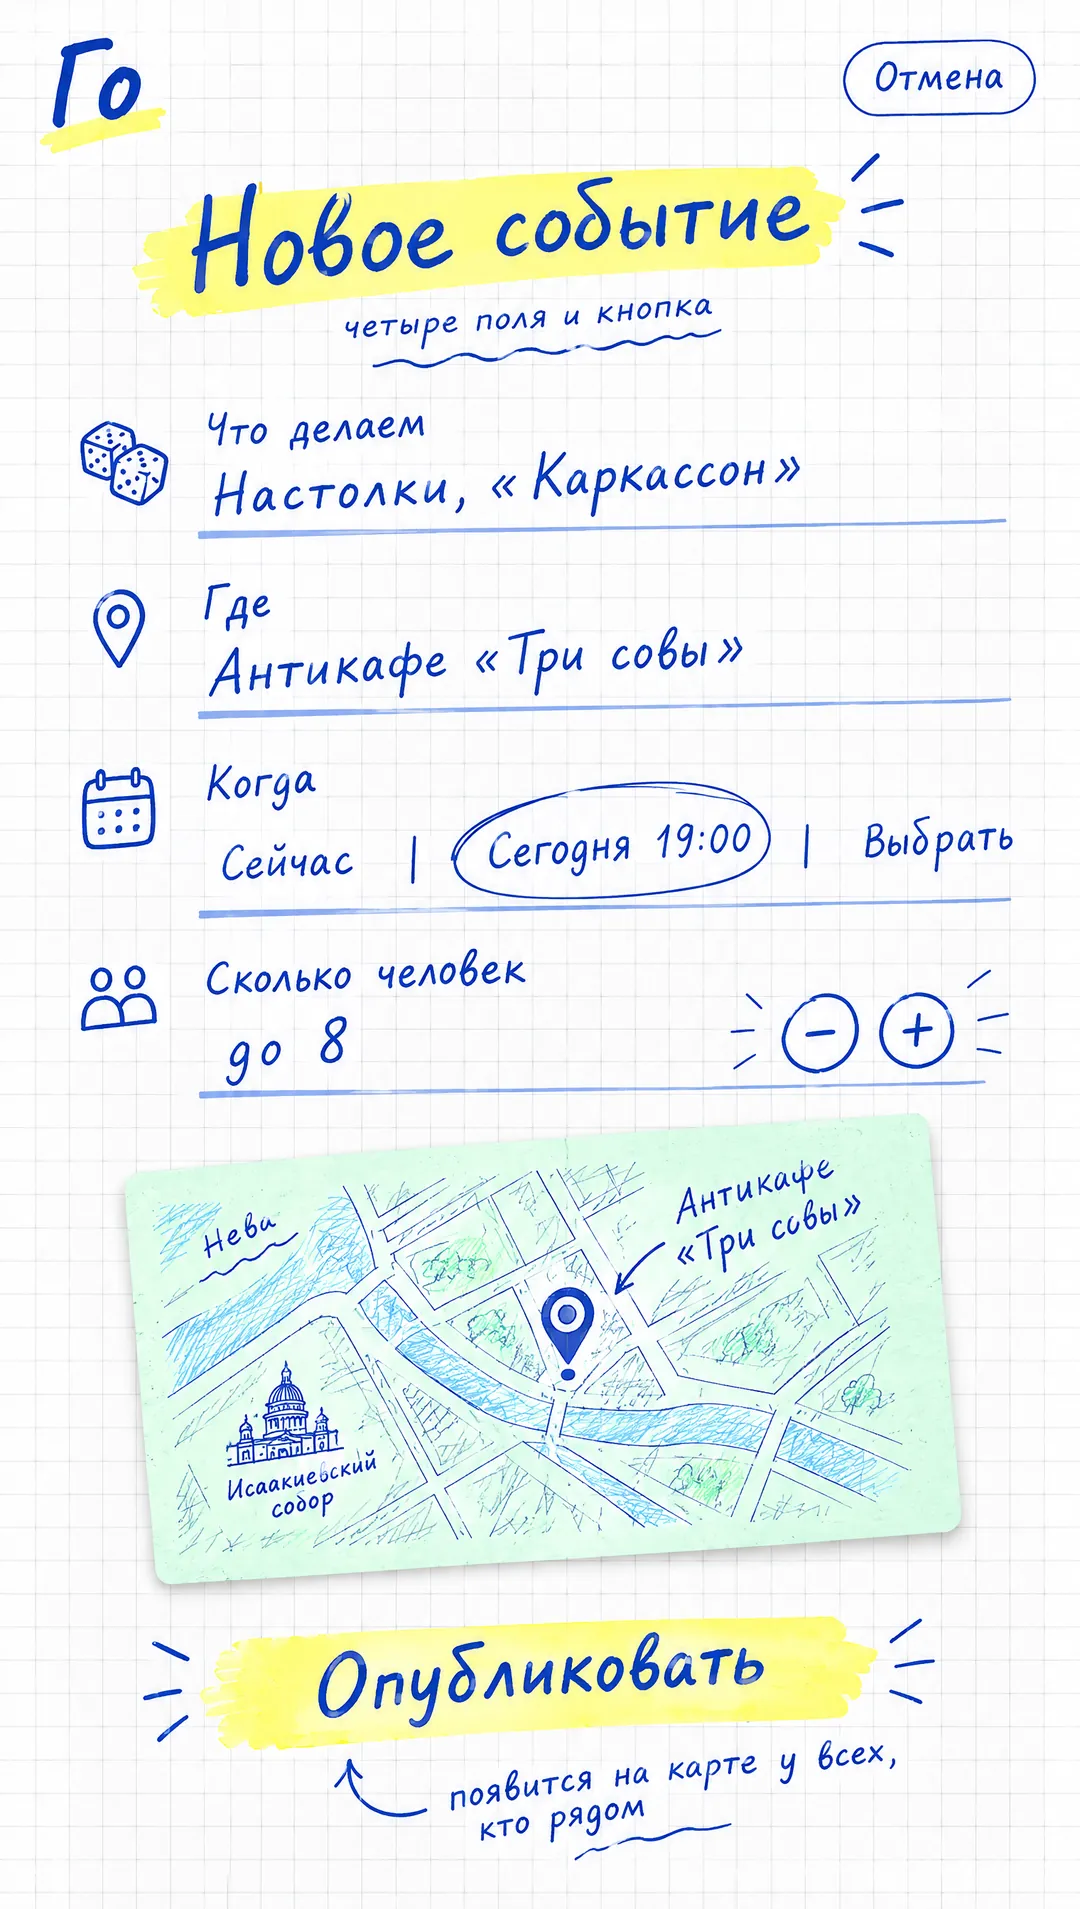 Го
Отмена
Новое событие
четыре поля и кнопка
Что делаем
Настолки, «Каркассон»
Где
Антикафе «Три совы»
Когда
Сейчас | Сегодня 19:00 | Выбрать
Сколько человек
до 8
− +
Антикафе
«Три совы»
Нева
Исаакиевский
собор
Опубликовать
появится на карте у всех,
кто рядом